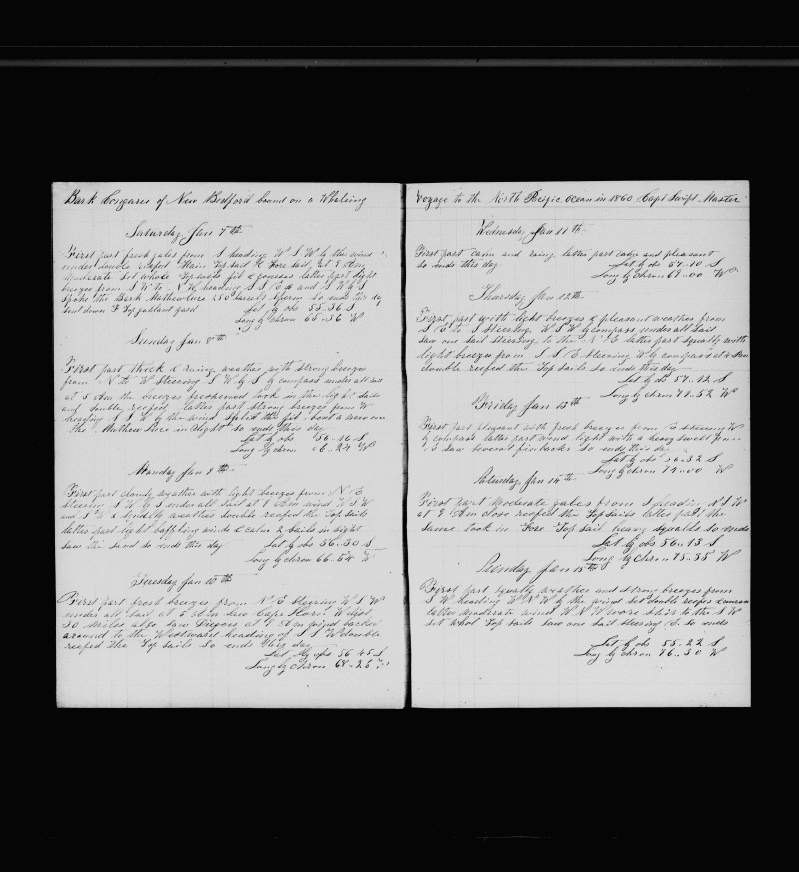 Bark Congaree of New Bedford bound on a Whaleing
Saturday Jan 7th
First part fresh gales from S heading W S W by the wind
under double Reefed Main Top sail & Fore sail, at 8 Am
moderate set whole Topsails jib & latter part light
breezes from S W to N W heading S S E and S W by S
Spoke the Bark Mathew Luce 250 barrels Sperm So ends this day
sent down F Top gallant yard Lat by obs 55-36 S
Long by Chron 65-36 W
Sunday Jan 8th
First part thick & rainy weather with strong breezes
from N to W Steering S W by S by compass under all sail
at 5 Am the breezes freshened took in the light sails
and double reefed latter part strong breezes from W
heading S S W by the wind the jib
the Mathew Luce in sight So ends this day
Lat by obs 56-16 S
Long by Chron 6-24 W
Monday Jan 9th
First part cloudy weather with light breezes from N E
steering S W by S under all sail at 8 Am wind W S W
and weather double reefed the Top sails
latter part light baffling winds & calm 2 sails in sight
saw the land so ends this day Lat by obs 56-30 S
Long by Chron 66-54 W
Tuesday Jan 10th
First part fresh breezes from N E Steering W S W
under all sail at 5 Am saw Cape Horn W dist
30 miles also saw Diegoes at 8 Am wind backed
around to the Westward heading of S S W double
reefed the Top sails So ends this day
Lat by obs 56-45 S
Long by Chron 68-25 W
Voyage to the North Pacific Ocean in 1860 Capt Swift Master
Wednesday Jan 11th
First part calm and rainy latter part calm and pleasant
so ends this day Lat by obs 57-10 S
Long by Chron 69-00 W
Thursday Jan 12th
First part with light breezes & pleasant weather from
S E to S Steering W S W by compass under all sail
saw one sail steering to the N E latter part squally with
light breezes from S S E Steering W by compass at 4 Am
double reefed the Top sails so ends this day
Lat by obs 57-12 S
Long by Chron 71-52 W
Friday Jan 13th
First part pleasant with fresh breezes from S steering W
by compass latter part wind light with a heavy swell from
saw several finbacks So ends this day
Lat by obs 56-32 S
Long by Chron 74-00 W
Saturday Jan 14th
First part Moderate gales from S heading W S W
at 8 Am close reefed the Top sails latter part the
same took in Fore Top sail heavy squalls so ends
Lat by obs 56-13 S
Long by Chron 75-35 W
Sunday Jan 15th
First part squally weather and strong breezes from
S W heading W N W by the wind set double reefed
latter moderate wind W N W wore ship to the S W
set whole Top sails Saw one sail steering E. So ends
Lat by obs 55-22 S
Long by Chron 76-30 W